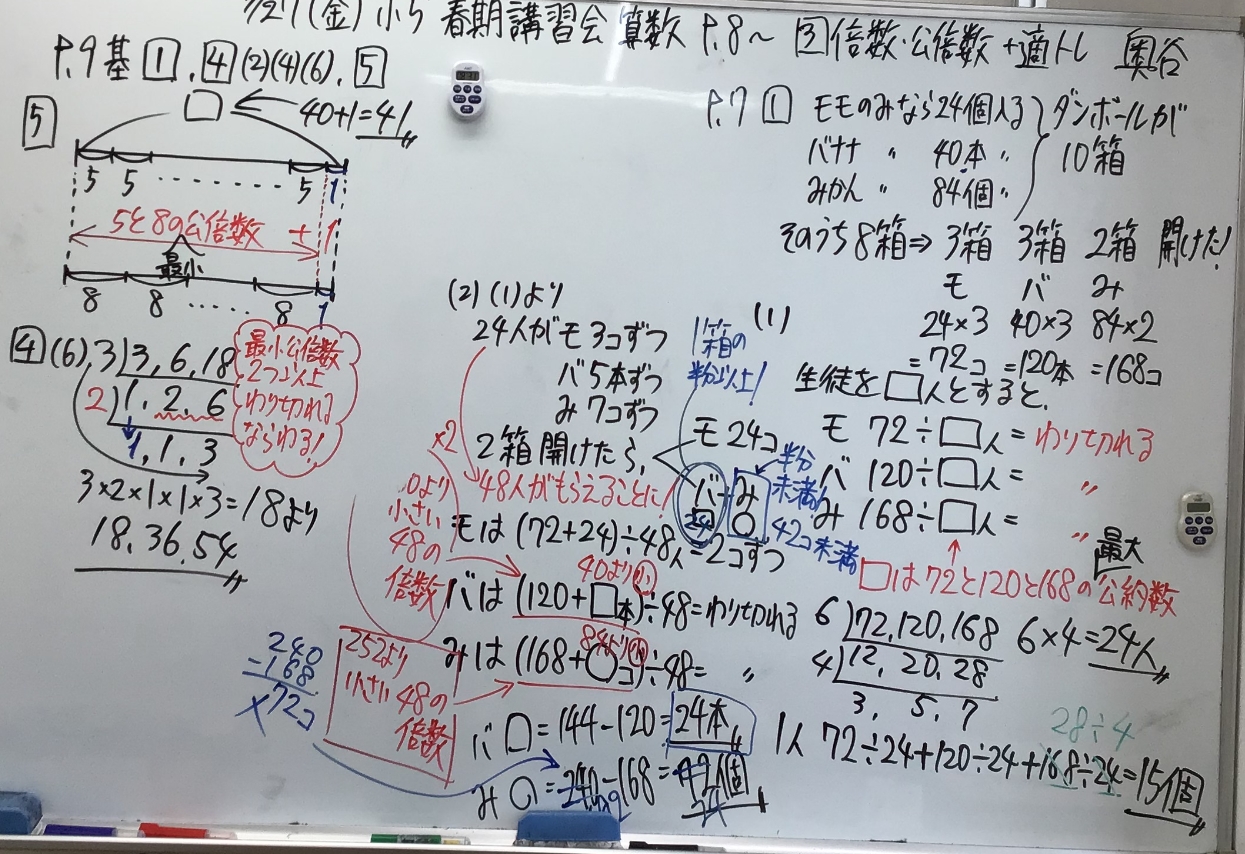 (金) 小5 春期講習会 算数 P.8~ ②倍数・公倍数 +適トレ 奥谷
P.9 基 1, 4 (2)(4)(6), 5
5
□ ← 40+1=41
5 5 ........ 5 1
5と8の公倍数 + 1
最小
8 8 ..... 8 1
4 (6) 3)3, 6, 18
2)1, 2, 6
1, 1, 3
最小公倍数
2つ以上
わり切れる
ならわる!
3×2×1×1×3=18より
18, 36, 54
P.7 1 モモのみなら24個入る
バナナ 〃 40本 〃
みかん 〃 84個 〃
ダンボールが
10箱
そのうち8箱⇒ 3箱 3箱 2箱 開けた!
モ バ み
(1) 24×3 40×3 84×2
=72コ =120本 =168コ
生徒を□人とすると、
モ 72÷□人= わりきれる
バ 120÷□人= 〃
み 168÷□人= 〃
最大
□は72と120と168の公約数
6)72, 120, 168
4)12, 20, 28
3, 5, 7
6×4=24人
28÷4
1人 72÷24+120÷24+168÷24=15個
(2) (1)より
24人がモ3コずつ
バ5本ずつ
み7コずつ
×2
2箱開けたら、
モ24コ
バ み
24 ○
1箱の
半分以上!
半分
未満
42コ未満
48人がもらえることに!
モは (72+24)÷48人=2コずつ
小さい
48の
倍数
40より小
バは (120+□本)÷48=わりきれる
84より小
みは (168+○コ)÷48= 〃
252より
小さい48の
倍数
240
-168
×72コ
バ □=144-120=24本
み ○=240-168=72個
192
24